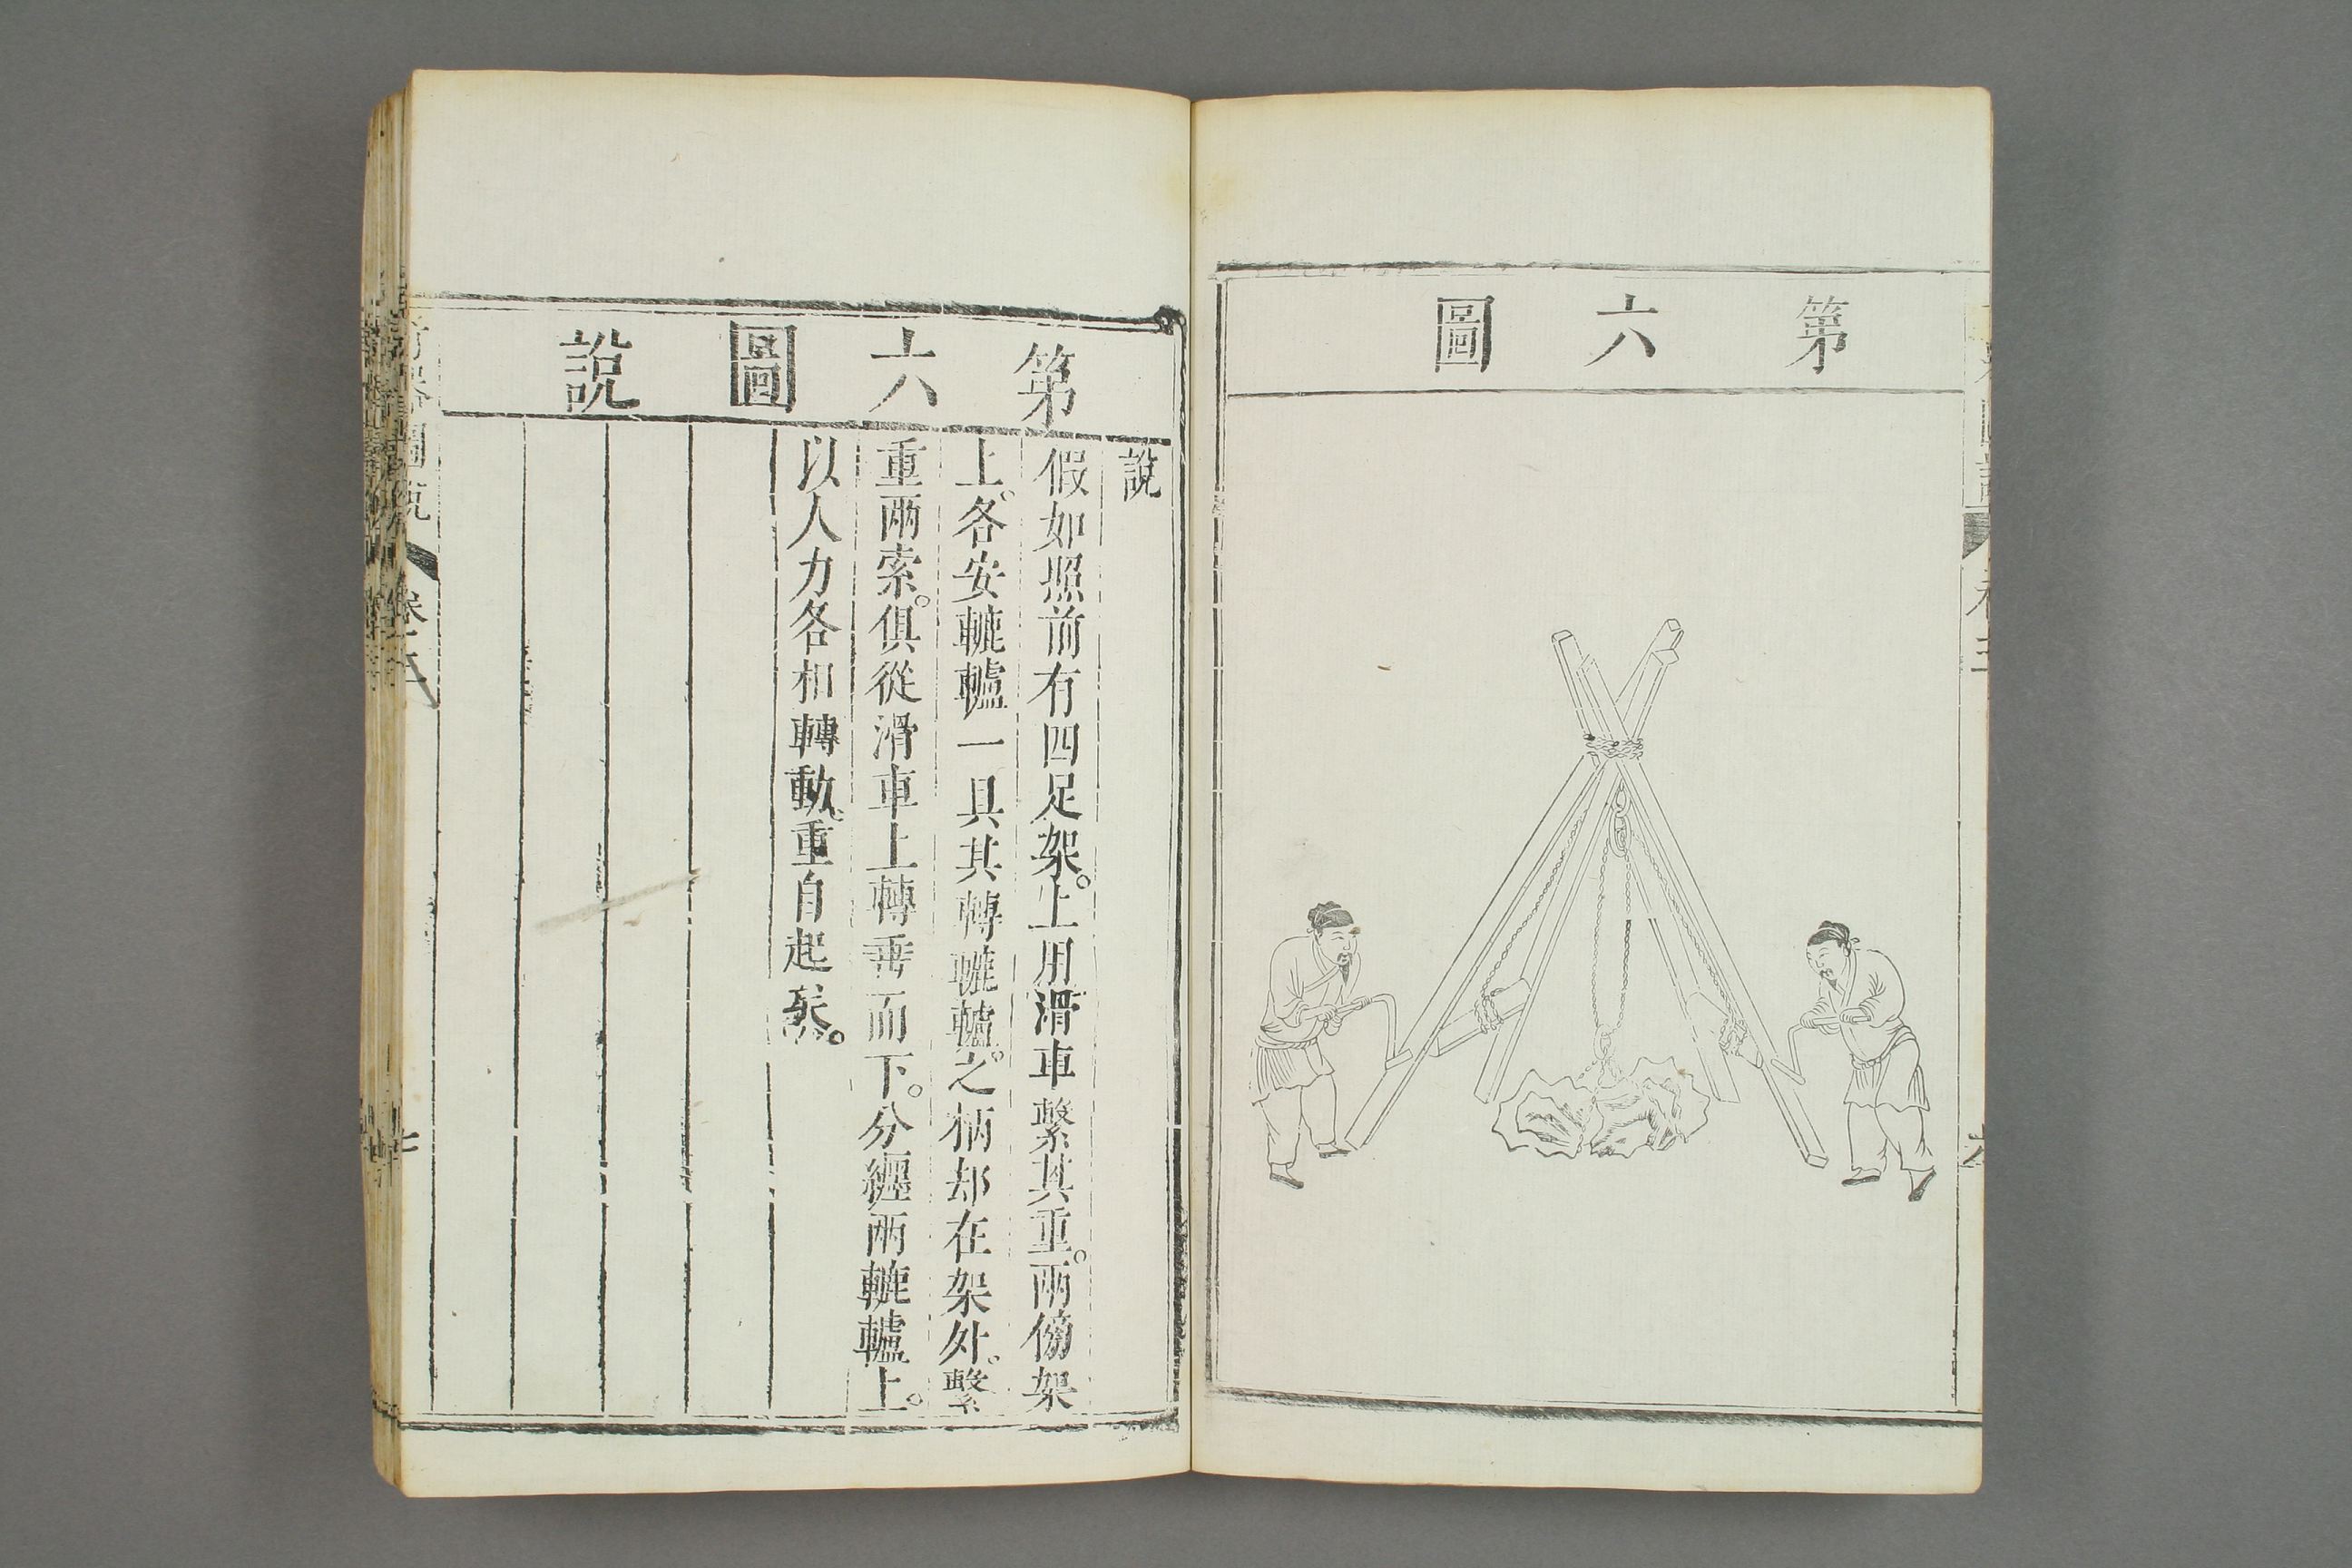 第六圖
第六圖說
說
假如照前有四足架。上用滑車繫其重。兩傍架
上。各安轆轤一具其轉轆轤。之柄却在架外。繫
重兩索。俱從滑車上轉垂而下。分纏兩轆轤上。
以人力各相轉動。重自起矣。